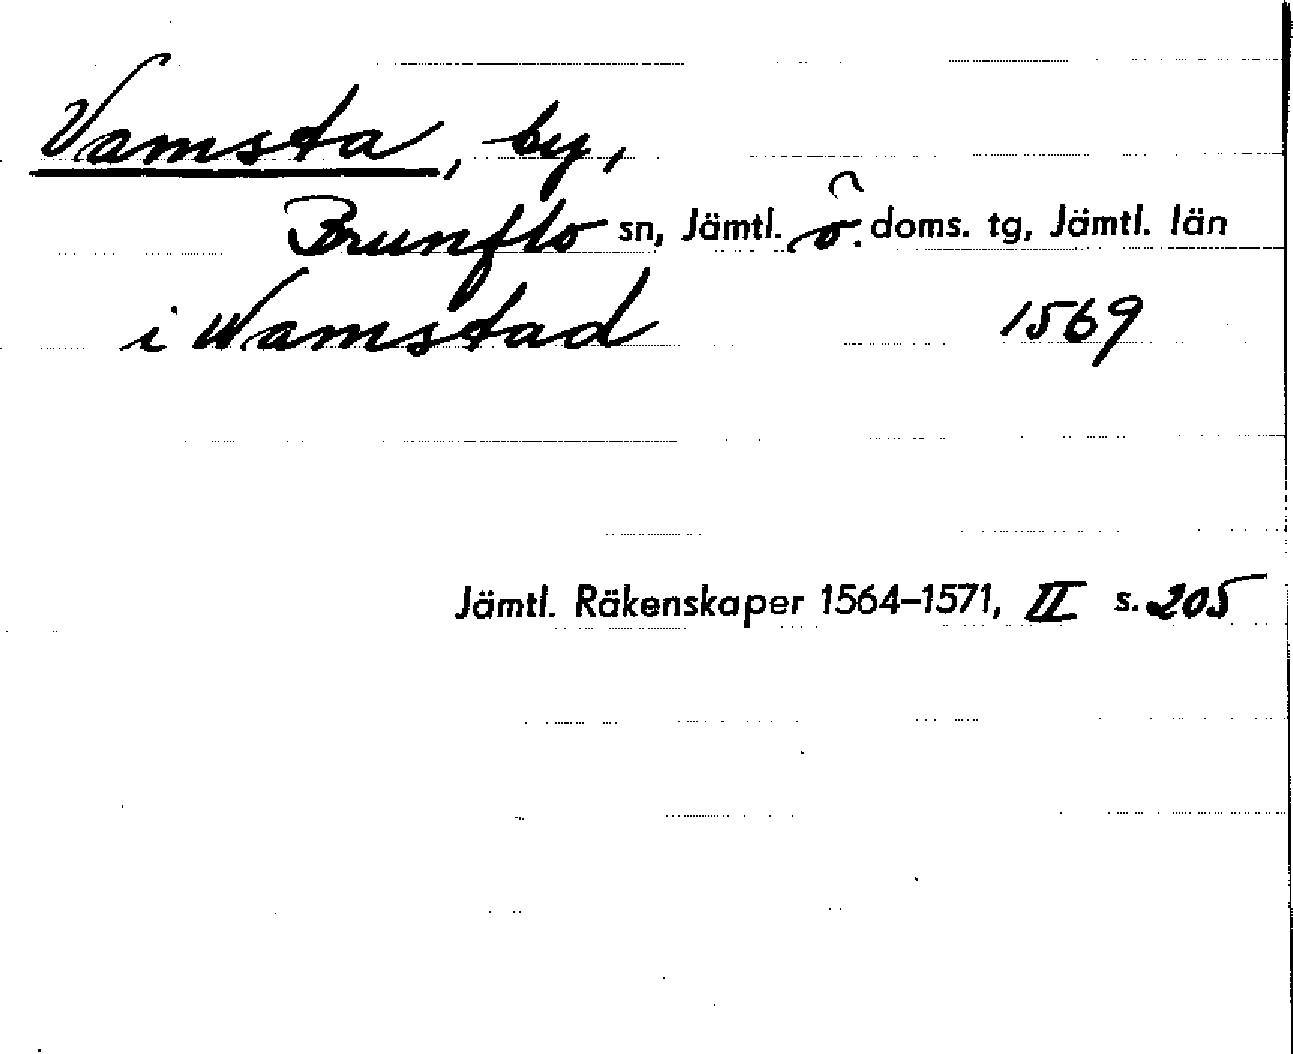 Vamsta, by,
Brunflo sn, Jämtl. ö. doms. tg, Jämtl. län
i Wamstad 1569
Jämtl. Räkenskaper 1564–1571, II s. 205